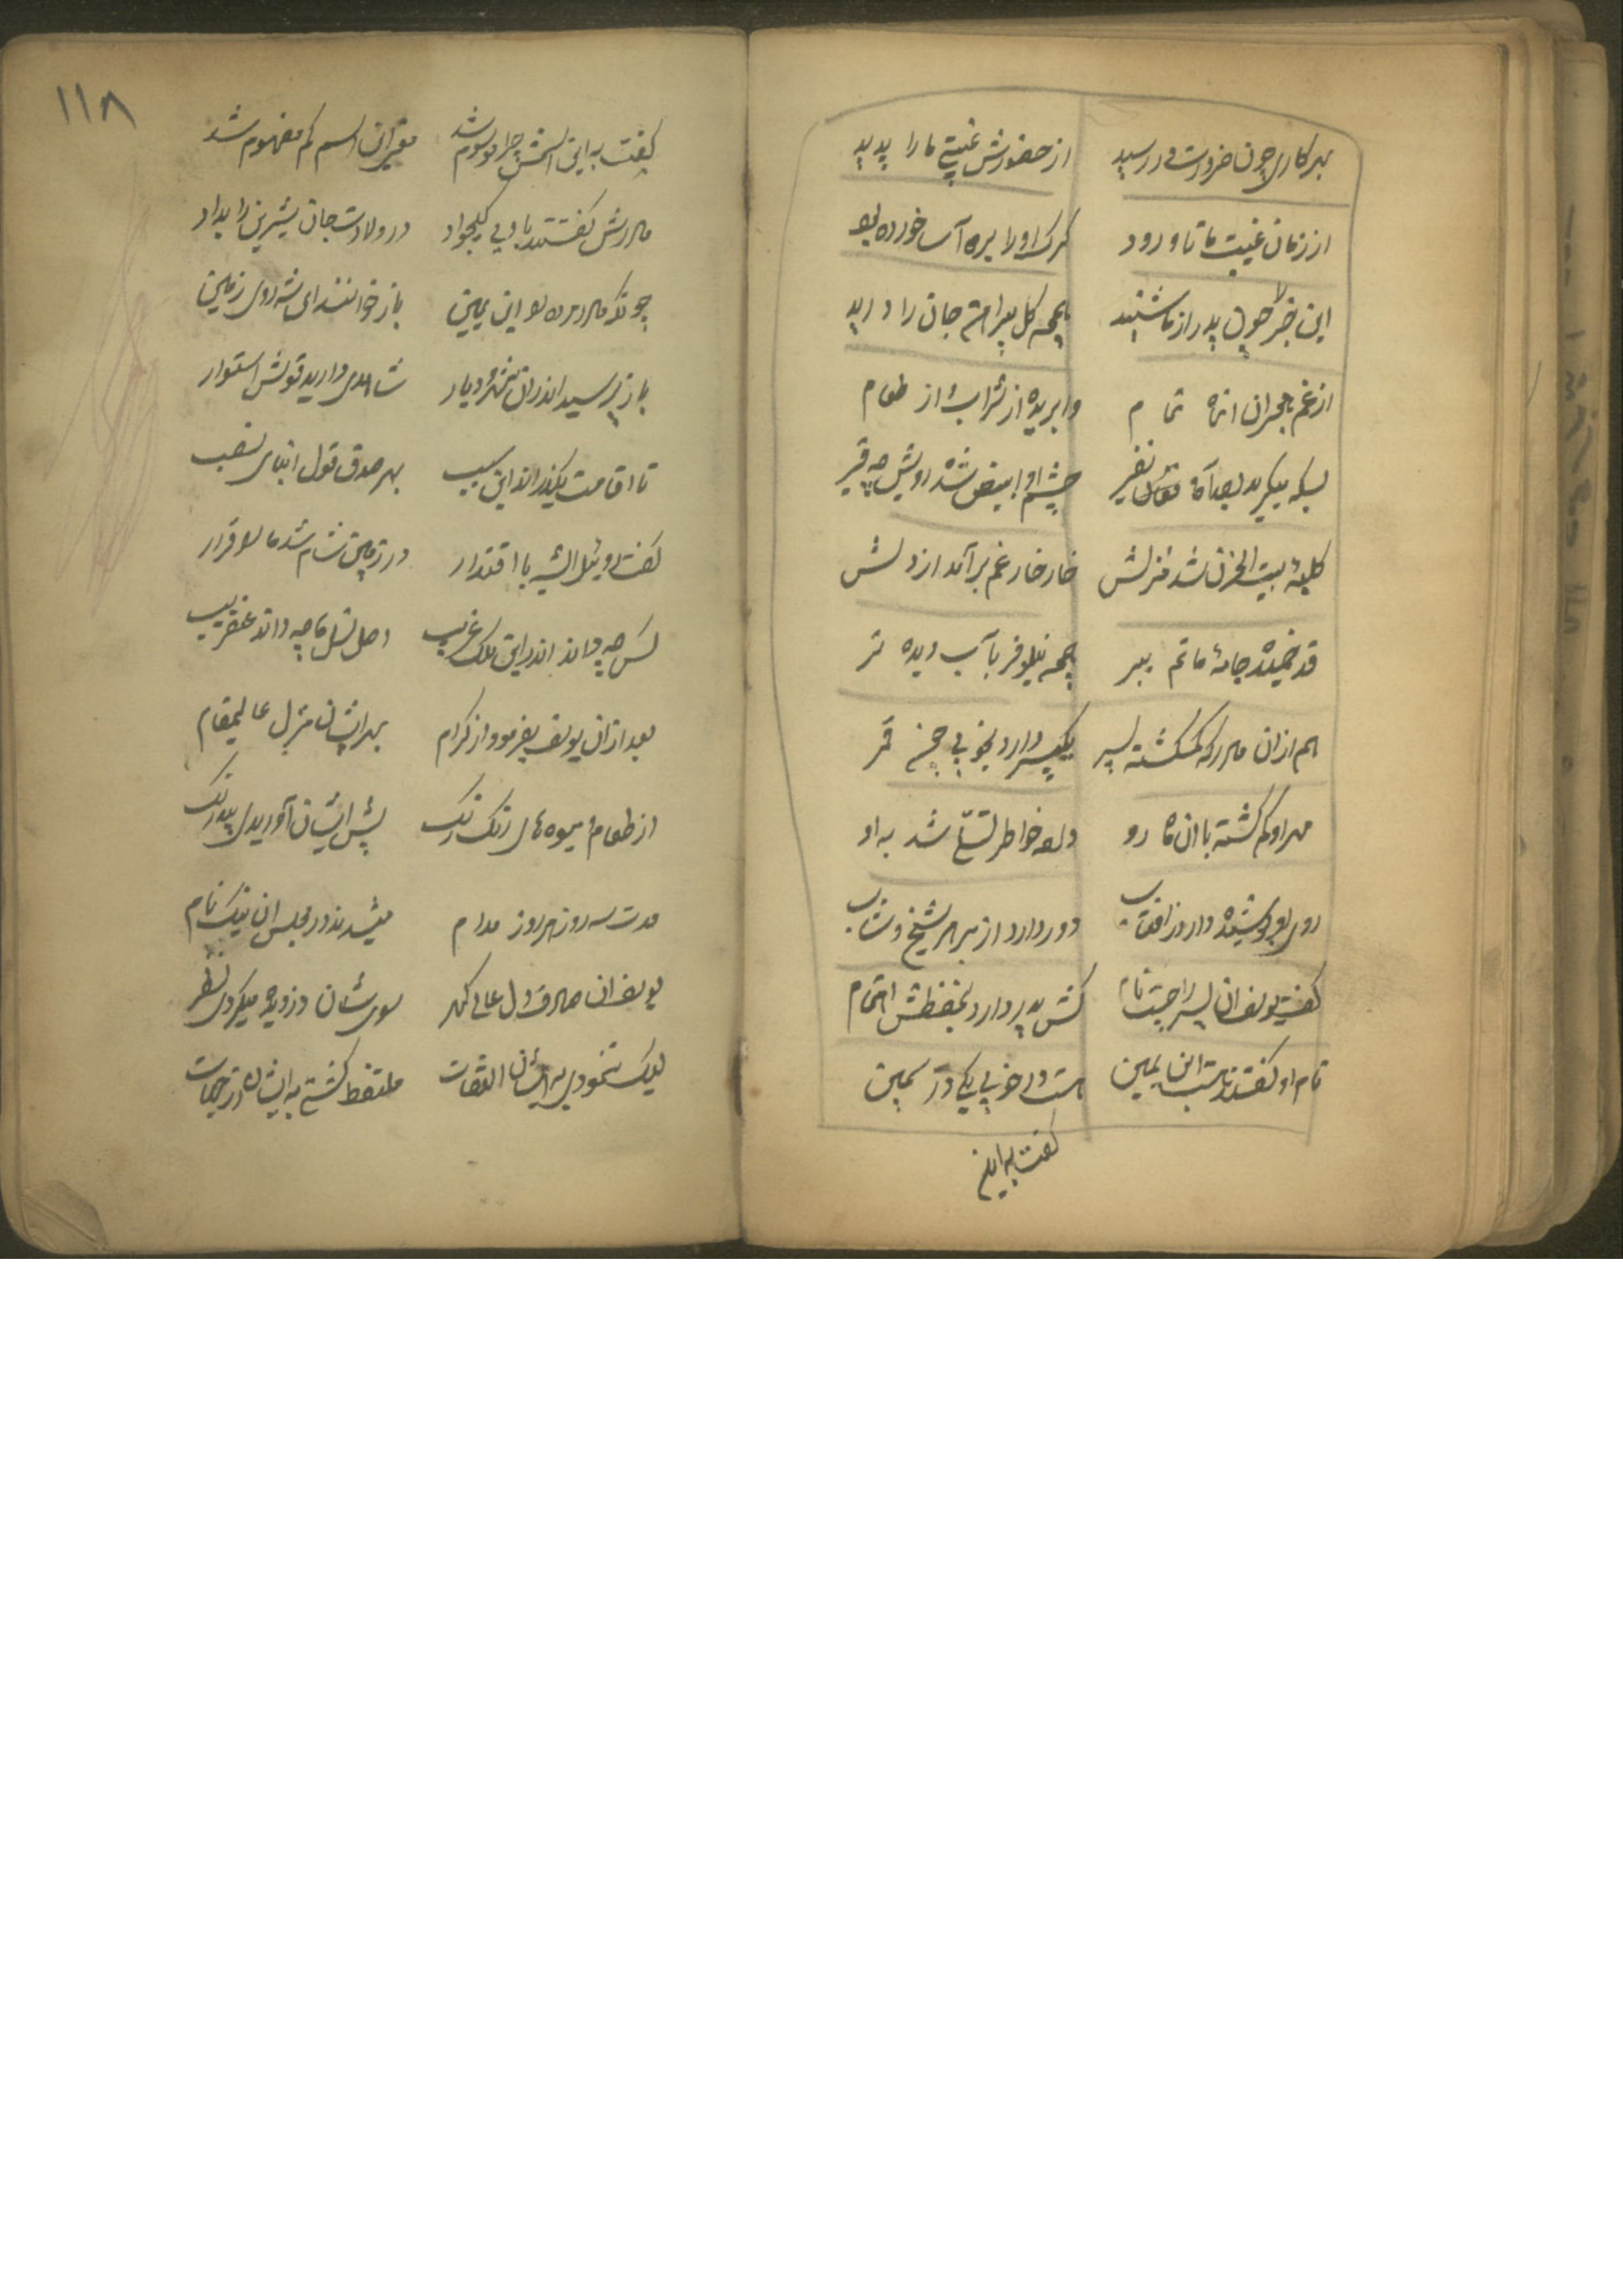 بهر کاری چون ضرورت در رسید از حضورش غیبتی ما را پدید
از زمان غیبت ما تا ورود کرک او را بره آسا خورده بود
این خبر چون پدر از ما شنید همچو کل پیراهن جان را درید
از غم هجران انماه تمام وا بریده از شراب و از طعام
بسکه میکرید بصد آه نفیر چشم او ابیض شده رویش چه قیر
کلبهٔ بیت الحزن شد منزلش خار خار غم برآمد از دلش
قد خمیده جامهٔ ماتم ببر همچه نیلوفر بآب دیده تر
هم از ان مادر که کمکشته پسر یکپسر دارد بخوبی چون قمر
مهر او کم کشته با ان ماه رو دارد خاطر تسلی شد به او
روی او پوشیده دارد ز افتاب دور دارد از بر هر شیخ و شاب
کفت یوسف ان پسر را چیست نام کش پدر دارد بحفظش اهتمام
نام او کفتند هست ابن یمین هست در خوبی یکی در ثمین
کفت به این
۱۱۸
کفت به این اسمش چرا موسوم شد معنی ان اسم کم مفهوم شد
مادرش کفتند با وی در ولادت جان شیرین را بداد
چونکه مادر مرده بود ابن یمین باز خوانند ای شه روی زمین
باز پرسید اندران شهر و دیار شاهدی دارید قولش استوار
تا اقامت بکذراند این سبب بهر صدق قول ابنای نسب
کفت روبیل ای شه با اقتدار در زمین شام شد ما را قرار
کس چه داند اندر این ملک غریب اصل نسل ما چه داند عنقریب
بعد از ان یوسف بفرمود از کرام بهر ایشان منزل عالیمقام
از طعام و میوه های رنک رنک پیش ایشان آوریدی بیدرنک
مدت سه روز هر روز مدام میشدند در مجلس ان نیک نام
یوسف ان صادق دل عالی کهر سوی شان دزدیده میکردی نظر
لیک ننمودی به ایشان التفات ملتفت کشتی به ایشان از جهات